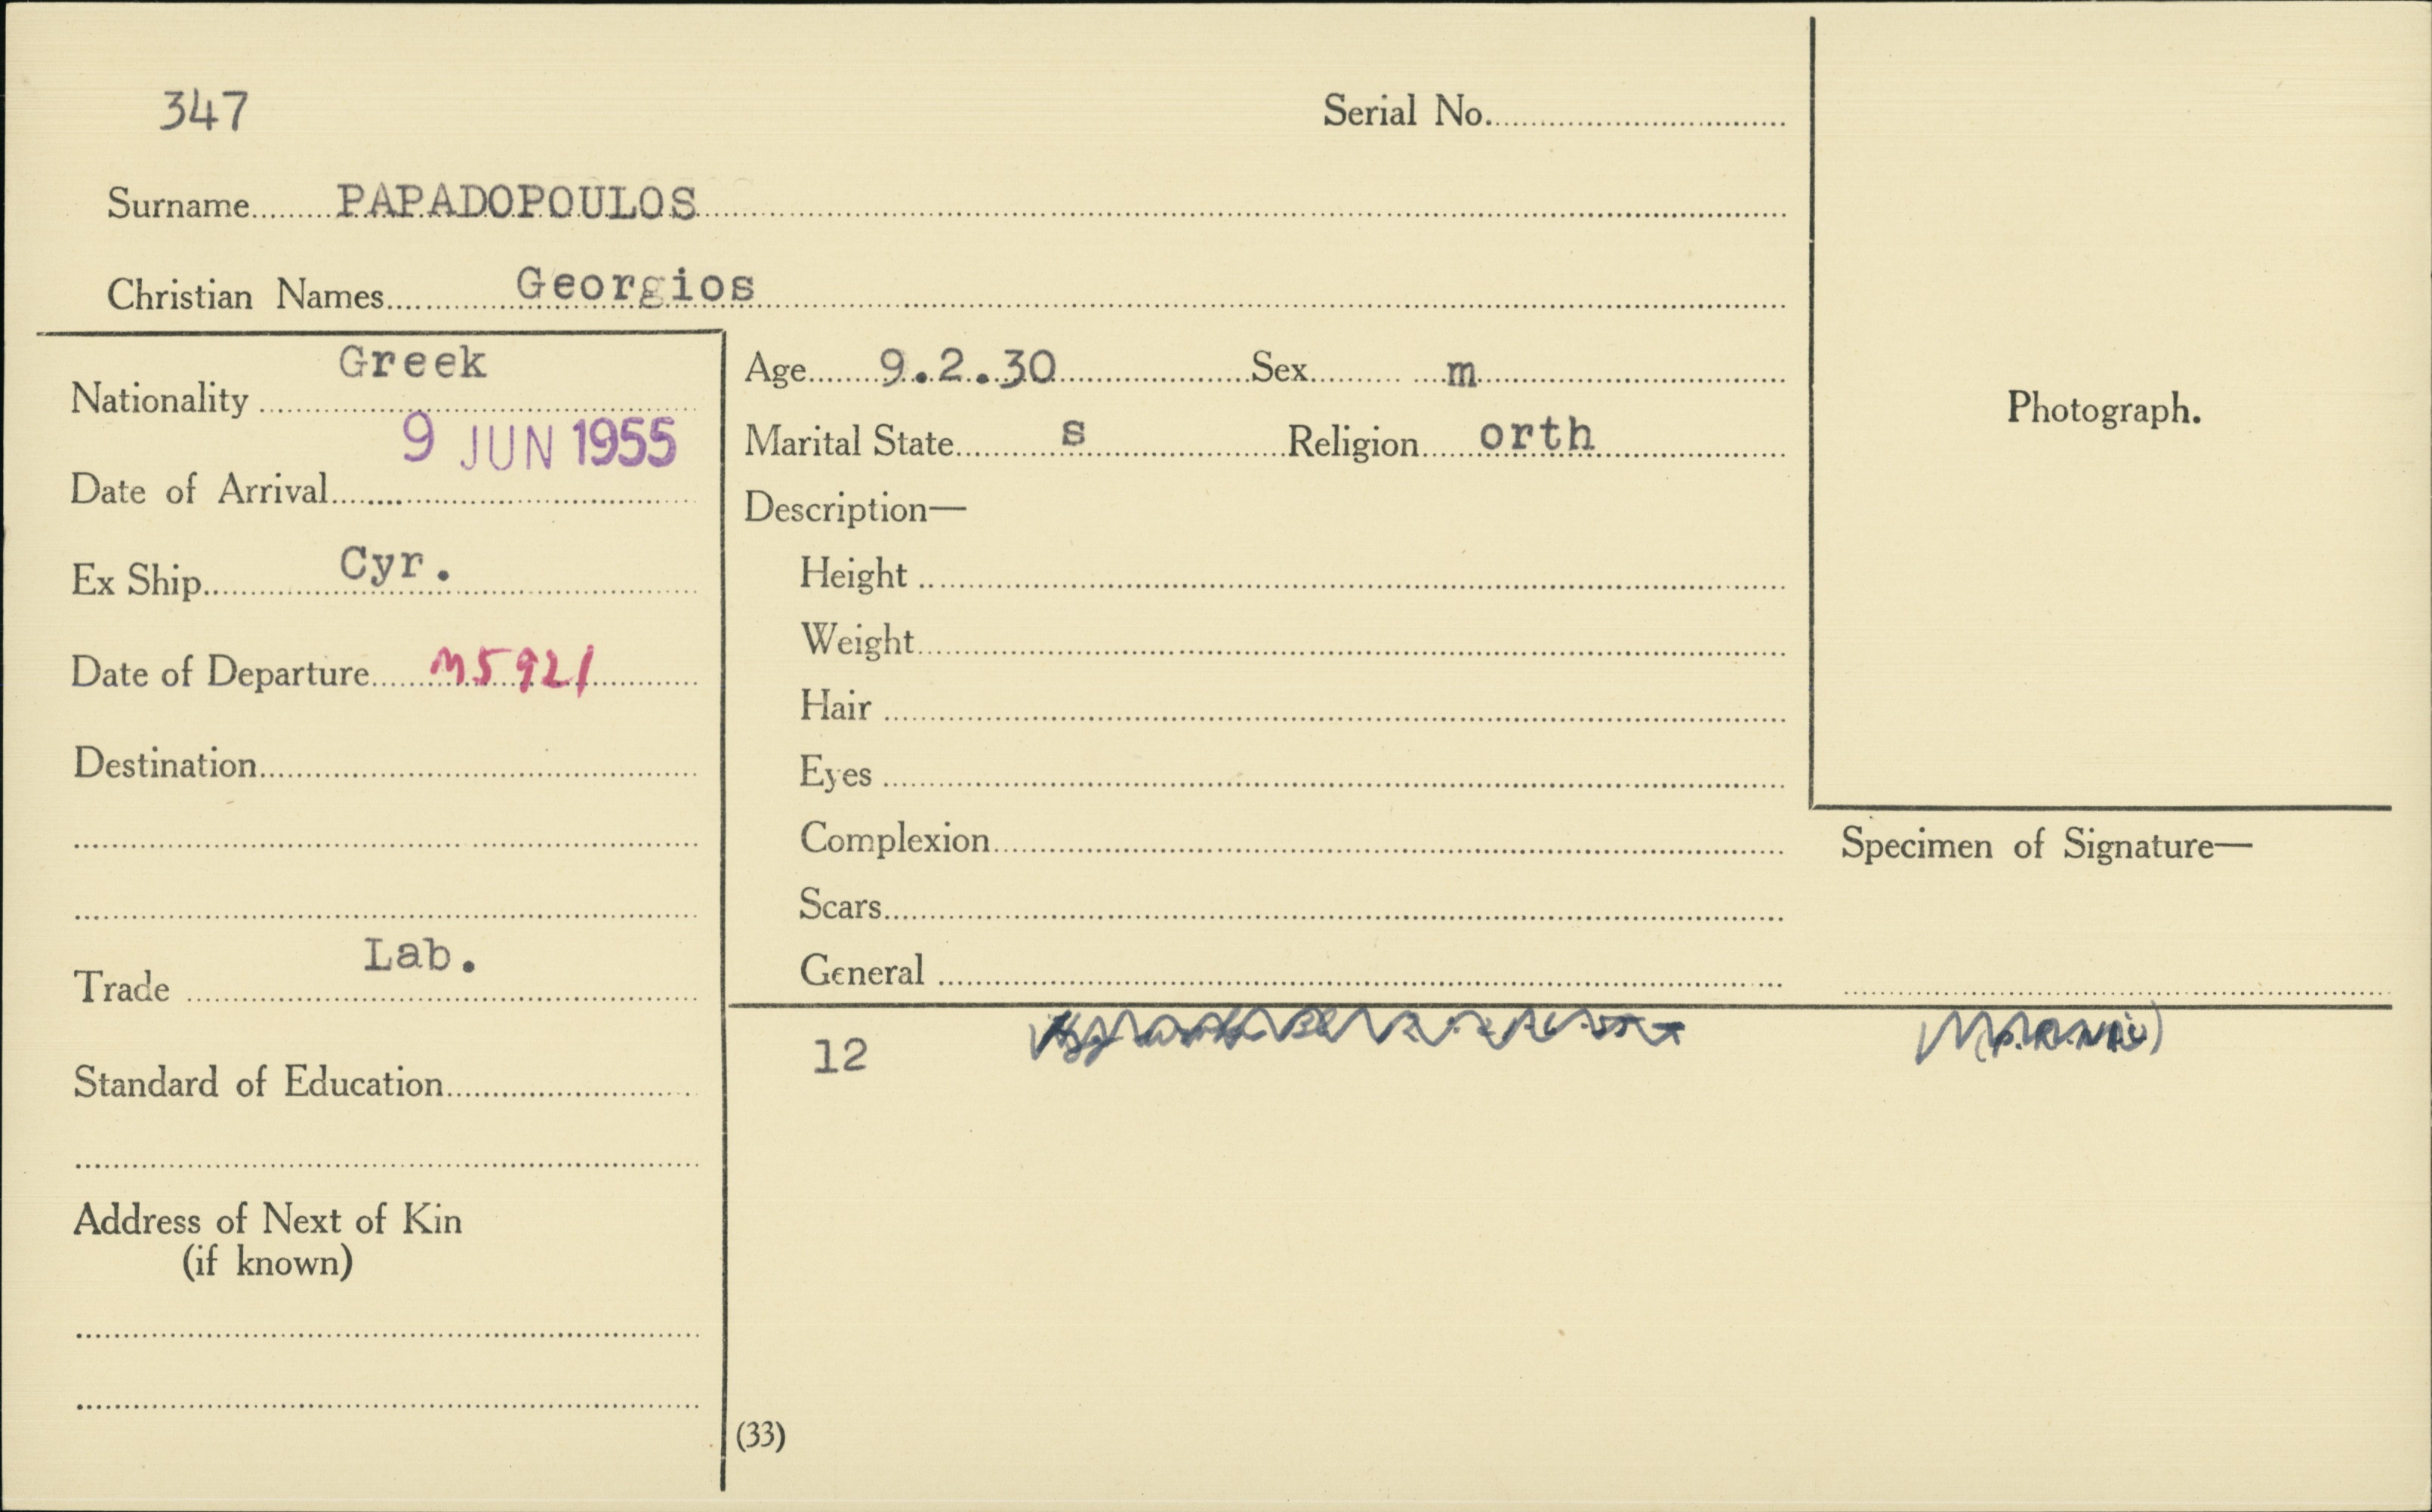 347
Serial No.
Surname PAPADOPOULOS
Christian Names Georgios
Nationality Greek
Date of Arrival 9 JUN 1955
Ex Ship Cyr.
Date of Departure M5921
Destination
Trade Lab.
Standard of Education
Address of Next of Kin
(if known)
Age 9.2.30 Sex m
Marital State s Religion orth
Description—
Height
Weight
Hair
Eyes
Complexion
Scars
General
Photograph.
Specimen of Signature—
12
(33)